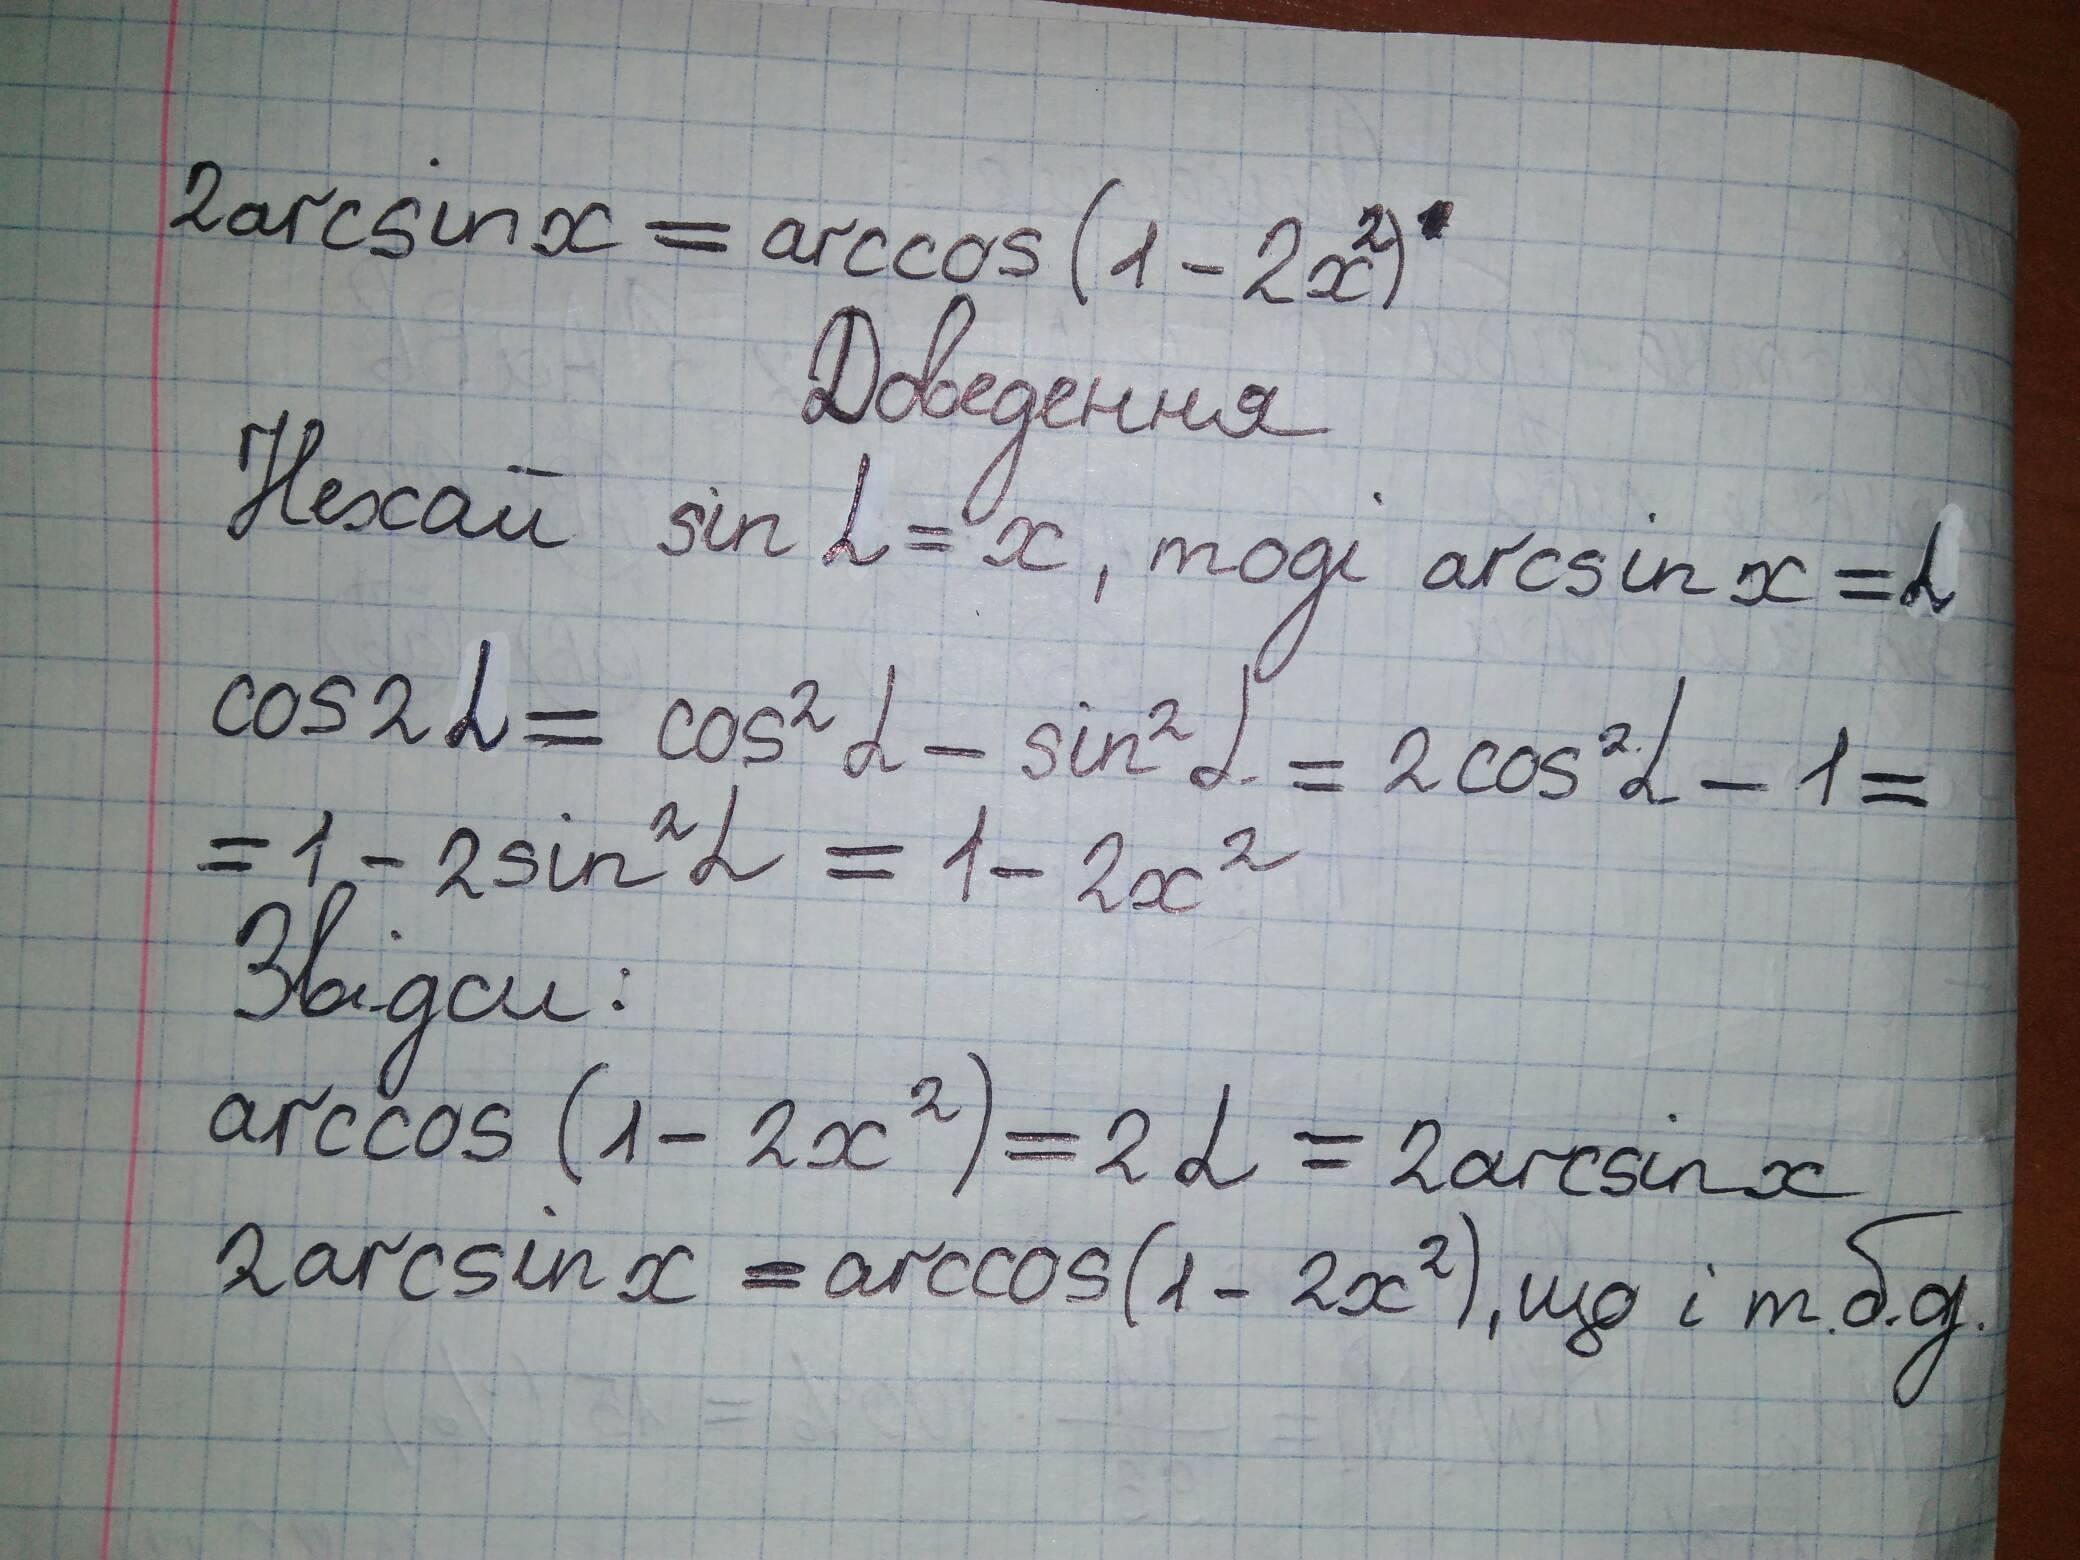 2arcsin x = arccos (1 - 2x²)
Доведення
Нехай sin α = x, тоді arcsin x = α
cos 2α = cos² α - sin² α = 2cos² α - 1 =
= 1 - 2sin² α = 1 - 2x²
Звідси:
arccos (1 - 2x²) = 2α = 2arcsin x
2arcsin x = arccos (1 - 2x²), що і т.б.д.